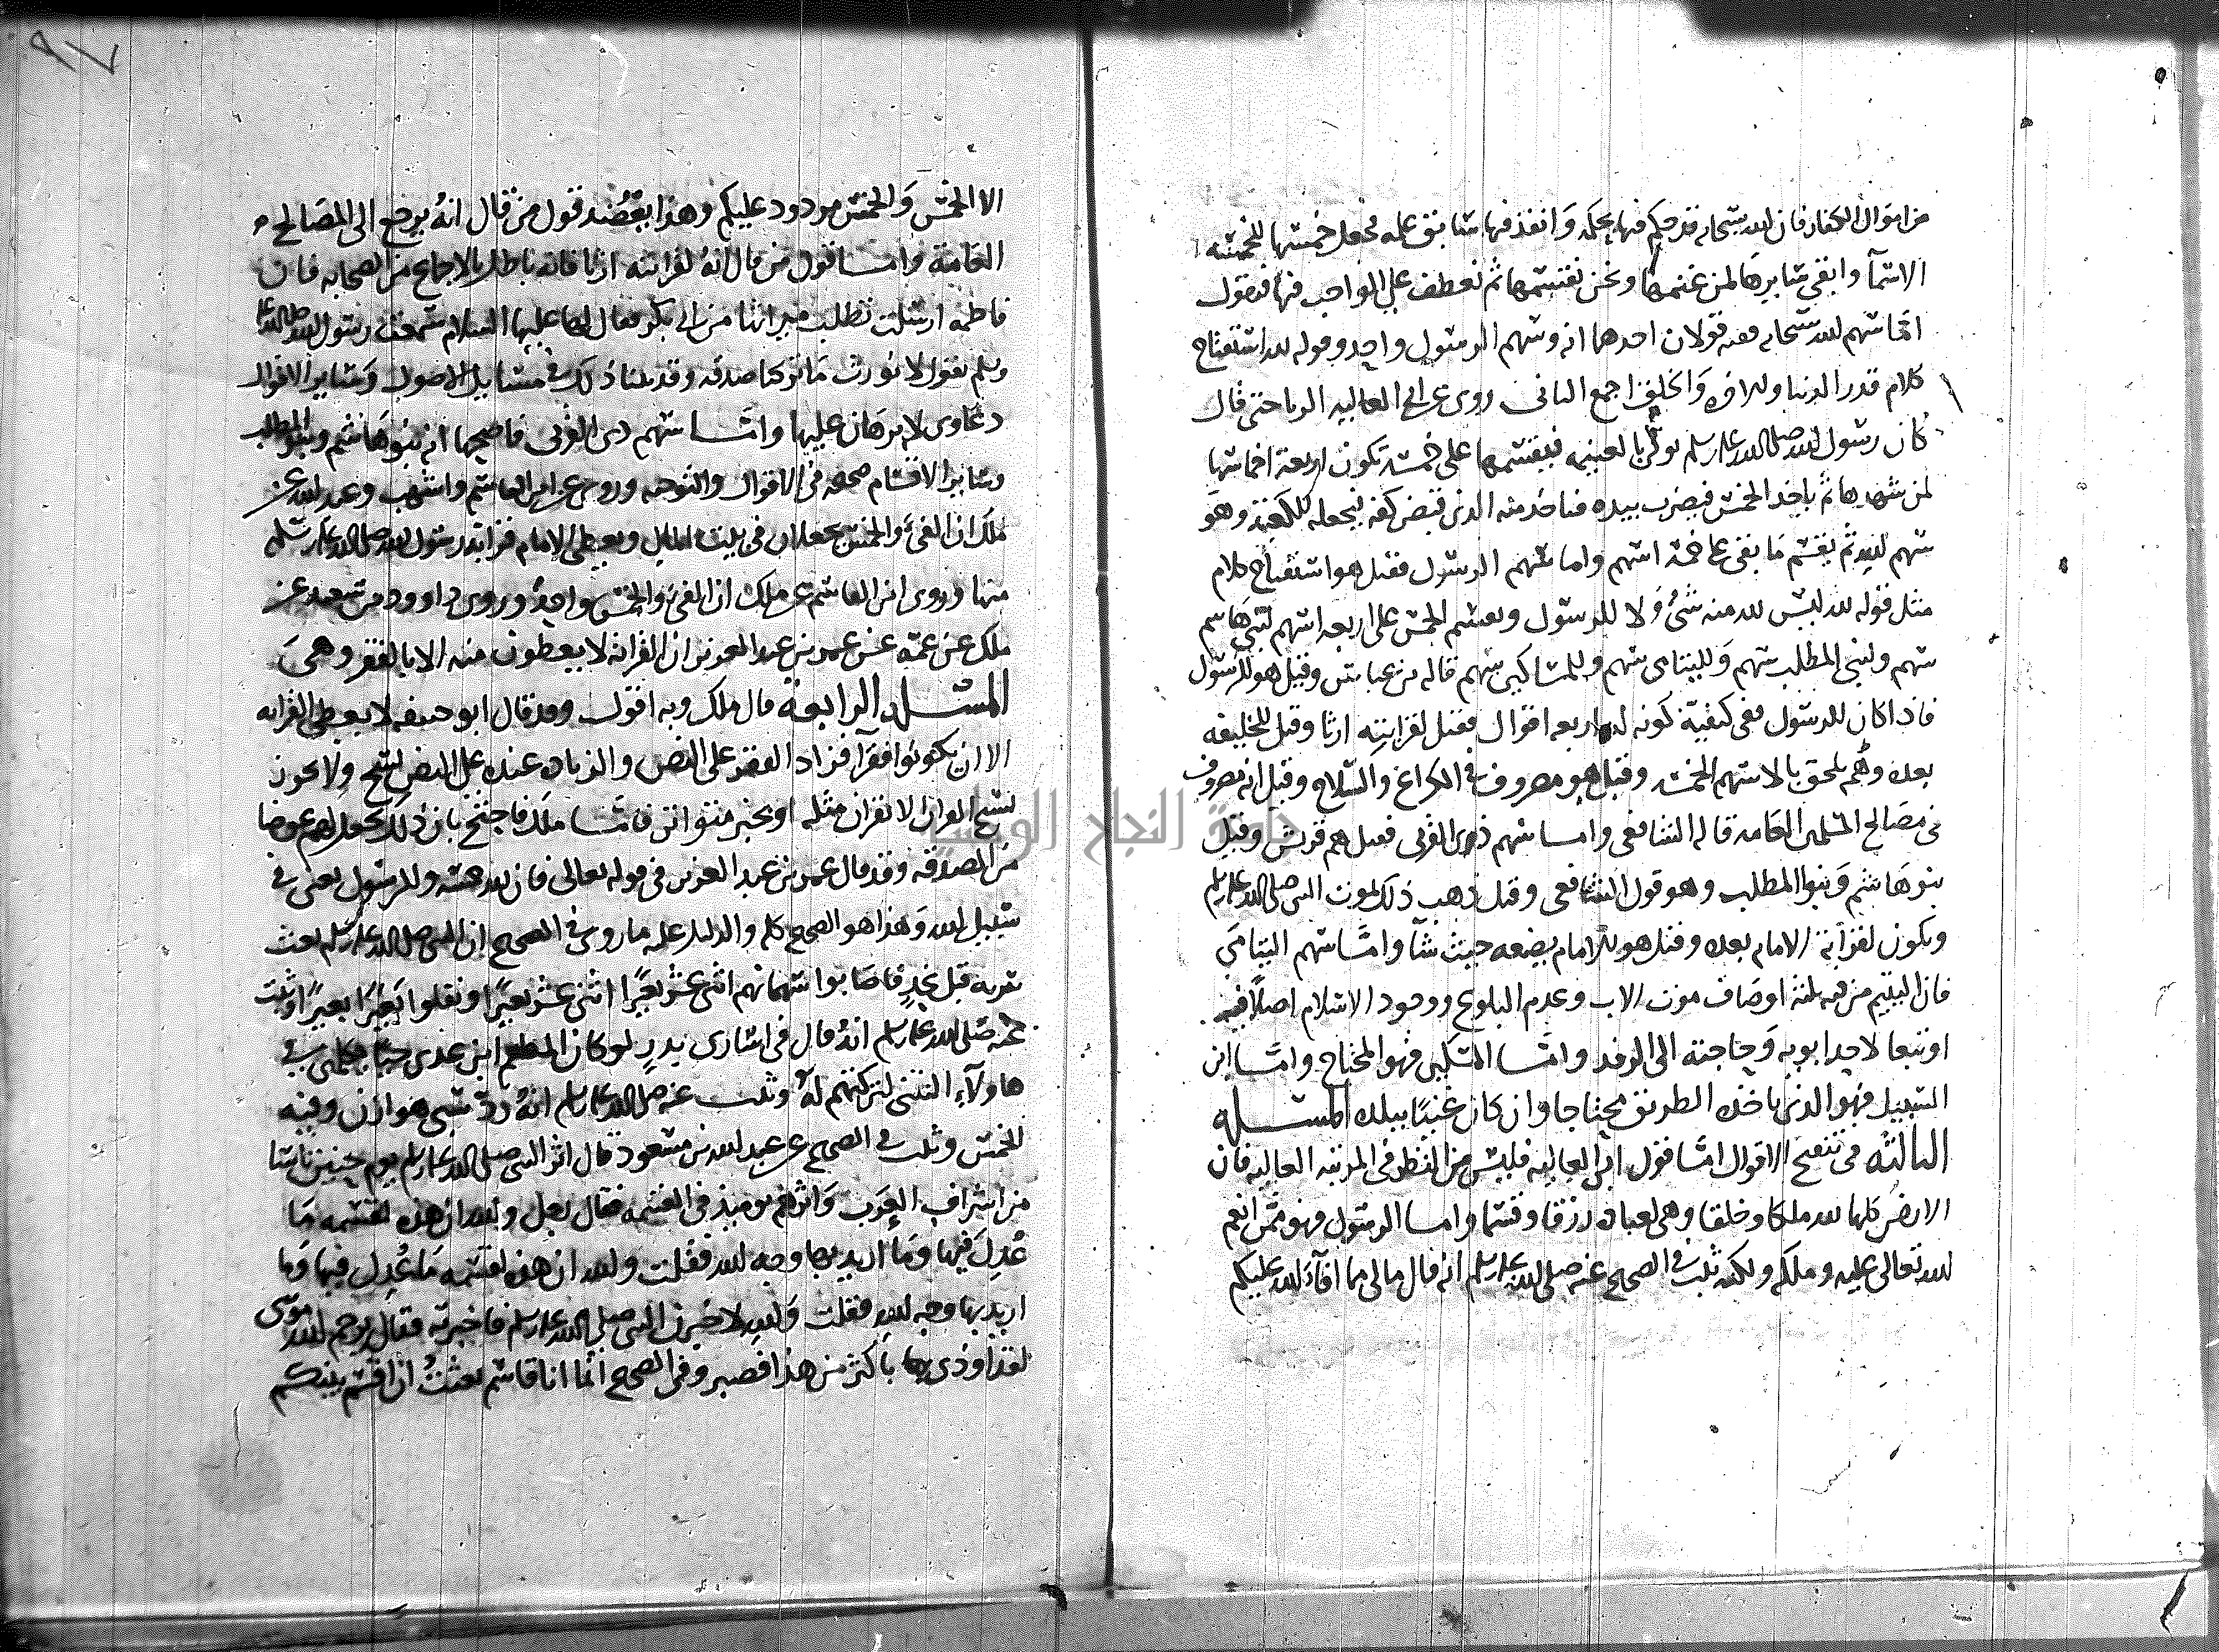 من اموال الكفار فان الله سبحانه قد حكم فيها بحكمه وانفذ فيها سابق علمه فجعل خمسها للخمسة
الاسما وابقى سايرها لمن غنمها ونحن نقسمها ثم نعطف على الواجب فيها فنقول
اما سهم الله سبحانه ففيه قولان احدهما انه وسهم الرسول واحد وقوله لله استفتاح
كلام فلله الدنيا والاخرة والخلق اجمع الثاني روى عن ابي العالية الرياحي قال
كان رسول الله صلى الله عليه وسلم يوتى بالغنيمة فيقسمها على خمسة تكون اربعة اخماسها
لمن شهدها ثم ياخذ الخمس فيضرب بيده فياخذ منه الذي قبض كفه فيجعله للكعبة وهو
سهم الله ثم يقسم ما بقى على خمسة اسهم واما سهم الرسول فقيل هو استفتاح كلام
مثل قوله لله ليس لله منه شئ ولا للرسول ويقسم الخمس على اربعة اسهم لبني هاشم
سهم ولبني المطلب سهم ولليتامى سهم وللمساكين سهم قاله بن عباس وقيل هو للرسول
فاذا كان للرسول ففي كيفية كونه له اربعة اقوال فقيل لقرابته ارثا وقيل للخليفة
بعده وقيل هو يلحق بالاسهم الخمسة وقيل هو مصروف في الكراع والسلاح وقيل انه مصروف
في مصالح المسلمين العامة قاله الشافعي واما سهم ذوي القربى فقيل هم قريش وقيل
بنو هاشم وبنوا المطلب وهو قول الشافعي وقيل ذهب ذلك لموت النبي صلى الله عليه وسلم
ويكون لقرابة الامام بعده وقيل هو للامام يضعه حيث شآ واما سهم اليتامى
فان اليتيم من فيه ثلثة اوصاف موت الاب وعدم البلوغ ووجود الاسلام اصلا فيه
او تبعا لاحد ابويه وحاجته الى الرفد واما المسكين فهو المحتاج واما ابن
السبيل فهو الذي ياخذه الطريق محتاجا وان كان غنيا ببلده المسلة
الثالثة في تنقيح الاقوال اما قول ابي العالية فليس من النظر في المرتبة العالية فان
الارض كلها لله ملكا وخلقا وهي لعباده رزقا وقسما واما الرسول فهو ممن انعم
الله تعالى عليه وملكه ولكنه ثبت في الصحيح عنه صلى الله عليه وسلم انه قال مالي مما افآء الله عليكم
الا الخمس والخمس مردود عليكم وهذا يعضد قول من قال انه يرجع الى المصالح
العامة واما قول من قال انه لقرابته ارثا فانه باطل بالاجماع من الصحابة فان
فاطمة ارسلت تطلب ميراثها من ابي بكر فقال لها عليها السلام سمعت رسول الله صلى الله عليه
وسلم يقول لا نورث ما تركنا صدقة وقد بينا ذلك في مسايل الاصول وساير الاقوال
دعاوى لا برهان عليها واما سهم ذوى القربى فاصحها انه بنو هاشم وبنو المطلب
وساير الاقسام صحيحة في الاقوال والتوجيه وروى عن ابن القاسم واشهب وعبد الملك عن
ملك ان الفئ والخمس يجعلان في بيت المال ويعطى الامام قرابة رسول الله صلى الله عليه وسلم
منها وروى ابن القاسم عن ملك ان الفئ والخمس واحد وروى داوود بن سعيد عن
ملك عن عمه عن عمر بن عبد العزيز ان القرابة لا يعطون منه الا بالفقر وهى
المسلة الرابعة قال ملك وبه اقول وقد قال ابو حنيفة لا يعطى القرابة
الا ان يكونوا فقرآ فزاد الفقر على النص والزيادة عنده على النص نسخ ولا يجوز
نسخ القران الا بقران مثله او بخبر متواتر فاما ملك فاحتج بان ذلك جعل لهم عوضا
من الصدقة وقد قال عمر بن عبد العزيز في قوله تعالى فان لله خمسه وللرسول يعنى في
سبيل الله وهذا هو الصحيح كله والدليل عليه ما روى في الصحيح ان النبي صلى الله عليه وسلم بعث
سرية قبل نجد فاصابوا سهمانهم اثنى عشر بعيرا اثنى عشر بعيرا ونفلوا بعيرا بعيرا وثبت
عنه صلى الله عليه وسلم انه قال في اسارى بدر لو كان المطعم ابن عدى حيا وكلمنى في
هاولآء النتنى لتركتهم له وثبت عنه صلى الله عليه وسلم انه رد سبى هوازن وفيه
الخمس وثبت في الصحيح عن عبد الله بن مسعود قال اثر النبي صلى الله عليه وسلم يوم حنين ناسا
من اشراف العرب واثرهم يوميذ في القسمة فقال رجل والله ان هذه لقسمة ما
عدل فيها وما اريد بها وجه الله فقلت والله ان هذه لقسمه ما عدل فيها وما
اريد بها وجه الله فقلت والله لاخبرن النبي صلى الله عليه وسلم فاخبرته فقال يرحم الله موسى
لقد اوذى بها باكثر من هذا فصبر وفى الصحيح انما انا قاسم بعثت ان اقسم بينكم
جامعة النجاح الوطنية